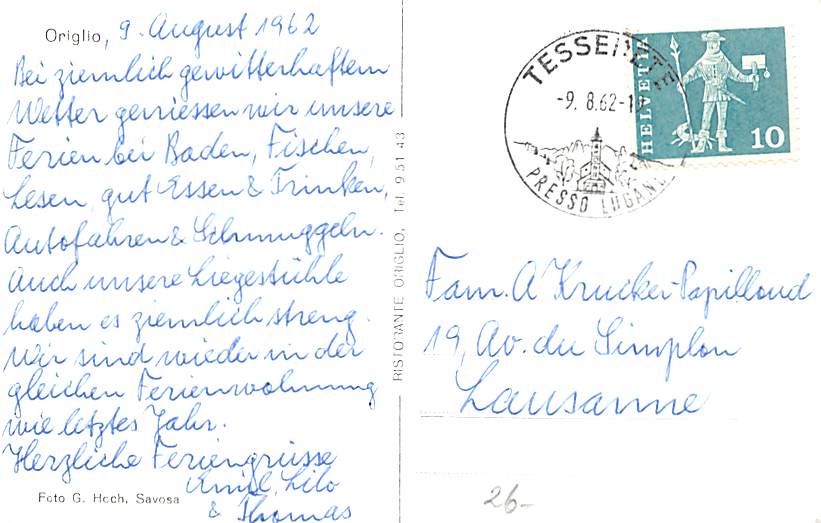 Origlio, 9. August 1962
Bei ziemlich gewitterhaftem
Wetter geniessen wir unsere
Ferien bei Baden, Fischen,
Lesen, gut Essen & Trinken,
Autofahren & Schmuggeln.
Auch unsere Liegestühle
haben es ziemlich streng.
Wir sind wieder in der
gleichen Ferienwohnung
wie letztes Jahr.
Herzliche Feriengrüsse
Emil, Lilo
& Thomas
Foto G. Hoch, Savosa
RISTORANTE ORIGLIO, Tel. 9 51 43
TESSERETE
-9. 8.62-1
PRESSO LUGANO
HELVETIA
10
Fam. A Krucker-Papilloud
19, Av. du Simplon
Lausanne
26-